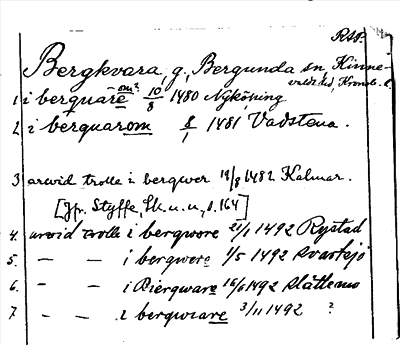 RAP.
Bergkvara, g, Bergunda sn, Kinne-
valds hd, Kronob. l.
1 i berquare om? 10/8 1480 Nyköping
2 i berquarom 8/1 1481 Vadstena.
3 arwid trolle i berqwer 19/8 1482 Kalmar.
[Jfr. Styffe, Sk. u. u, s. 164]
4. arwid trolle i bergwore 21/1 1492 Rystad
5. — — i bergwere 1/5 1492 Svartsjö
6. — — i Biergware 16/6 1492
7 — — i bergwiare 3/11 1492 ?